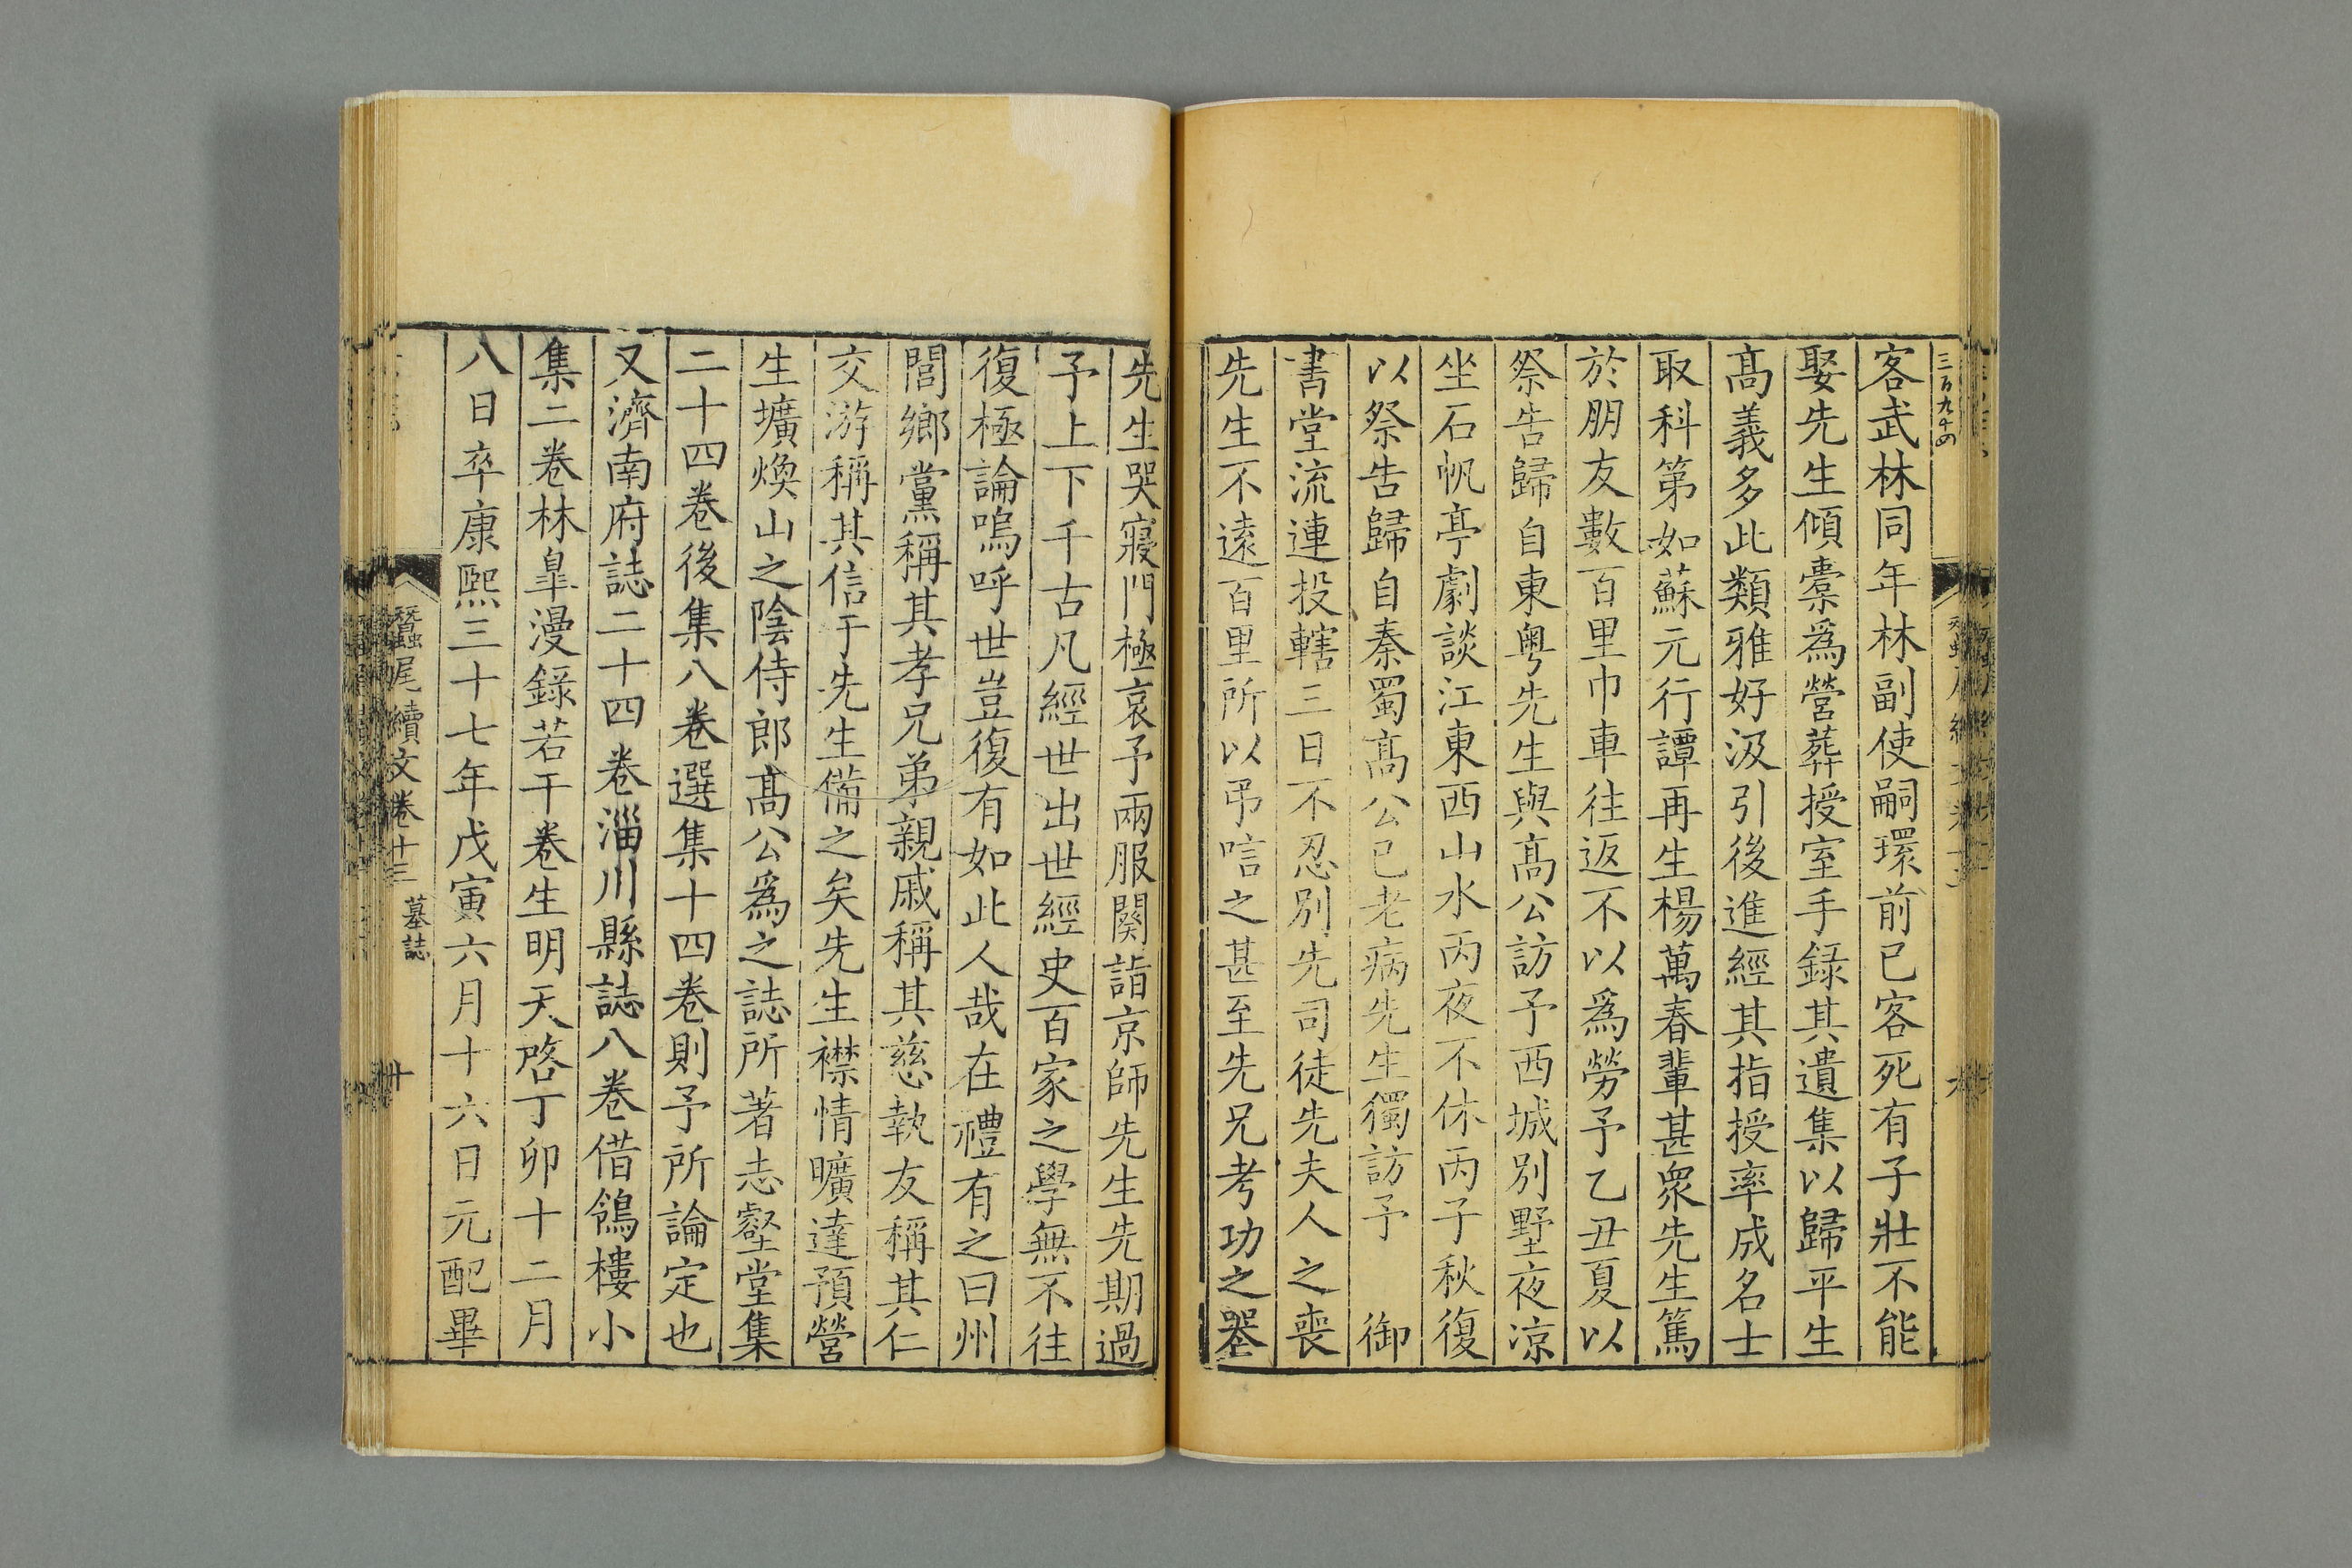 三百九十四
客武林同年林副使嗣環前已客死有子壯不能
娶先生傾橐爲營葬授室手録其遺集以歸平生
髙義多此類雅好汲引後進經其指授率成名士
取科第如蘇元行譚再生楊萬春輩甚衆先生篤
於朋友數百里巾車往返不以爲勞予乙丑夏以
祭告歸自東粤先生與髙公訪予西城別墅夜凉
坐石帆亭劇談江東西山水丙夜不休丙子秋復
以祭告歸自秦蜀髙公已老病先生獨訪予　御
書堂流連投轄三日不忍別先司徒先夫人之喪
先生不逺百里所以弔唁之甚至先兄考功之器
先生哭寢門極哀予兩服闋詣京師先生先期過
予上下千古凡經世出世經史百家之學無不往
復極論嗚呼世豈復有如此人哉在禮有之曰州
閭鄉黨稱其孝兄弟親戚稱其慈執友稱其仁
交游稱其信于先生備之矣先生襟情曠達預營
生壙煥山之陰侍郎髙公爲之誌所著志壑堂集
二十四卷後集八卷選集十四卷則予所論定也
又濟南府誌二十四卷淄川縣誌八卷借鴿樓小
集二卷林臯漫錄若干卷生明天啓丁卯十二月
八日卒康熙三十七年戊寅六月十六日元配畢
蠶尾續文卷十三　墓誌　卄